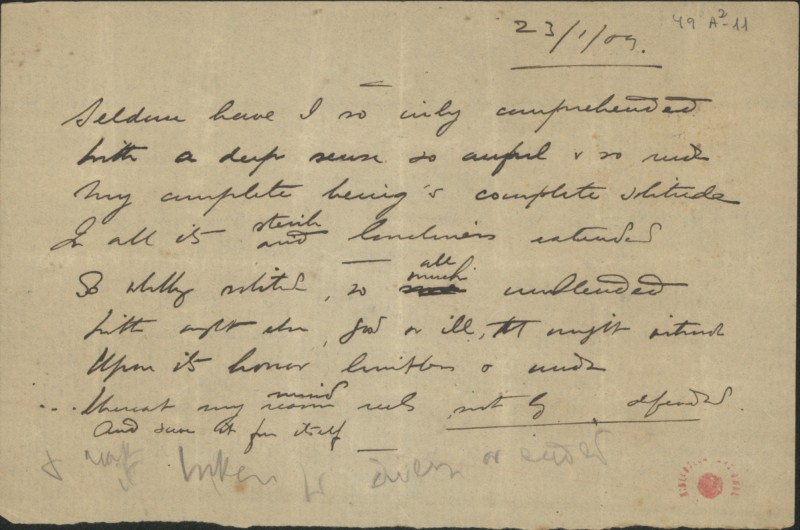 49 A²-11
23/1/09.
Seldom have I so only comprehended
With a deep sense so awful & so rude
My complete being's complete solitude
In all its sterile and loneliness extended
So wholly solitud, so all much unblended
With aught else, good or ill, that might intrude
Upon its horror limitless & nude
... Whereat my mind reason reels, not by defended
And save it from itself
& broken or ended